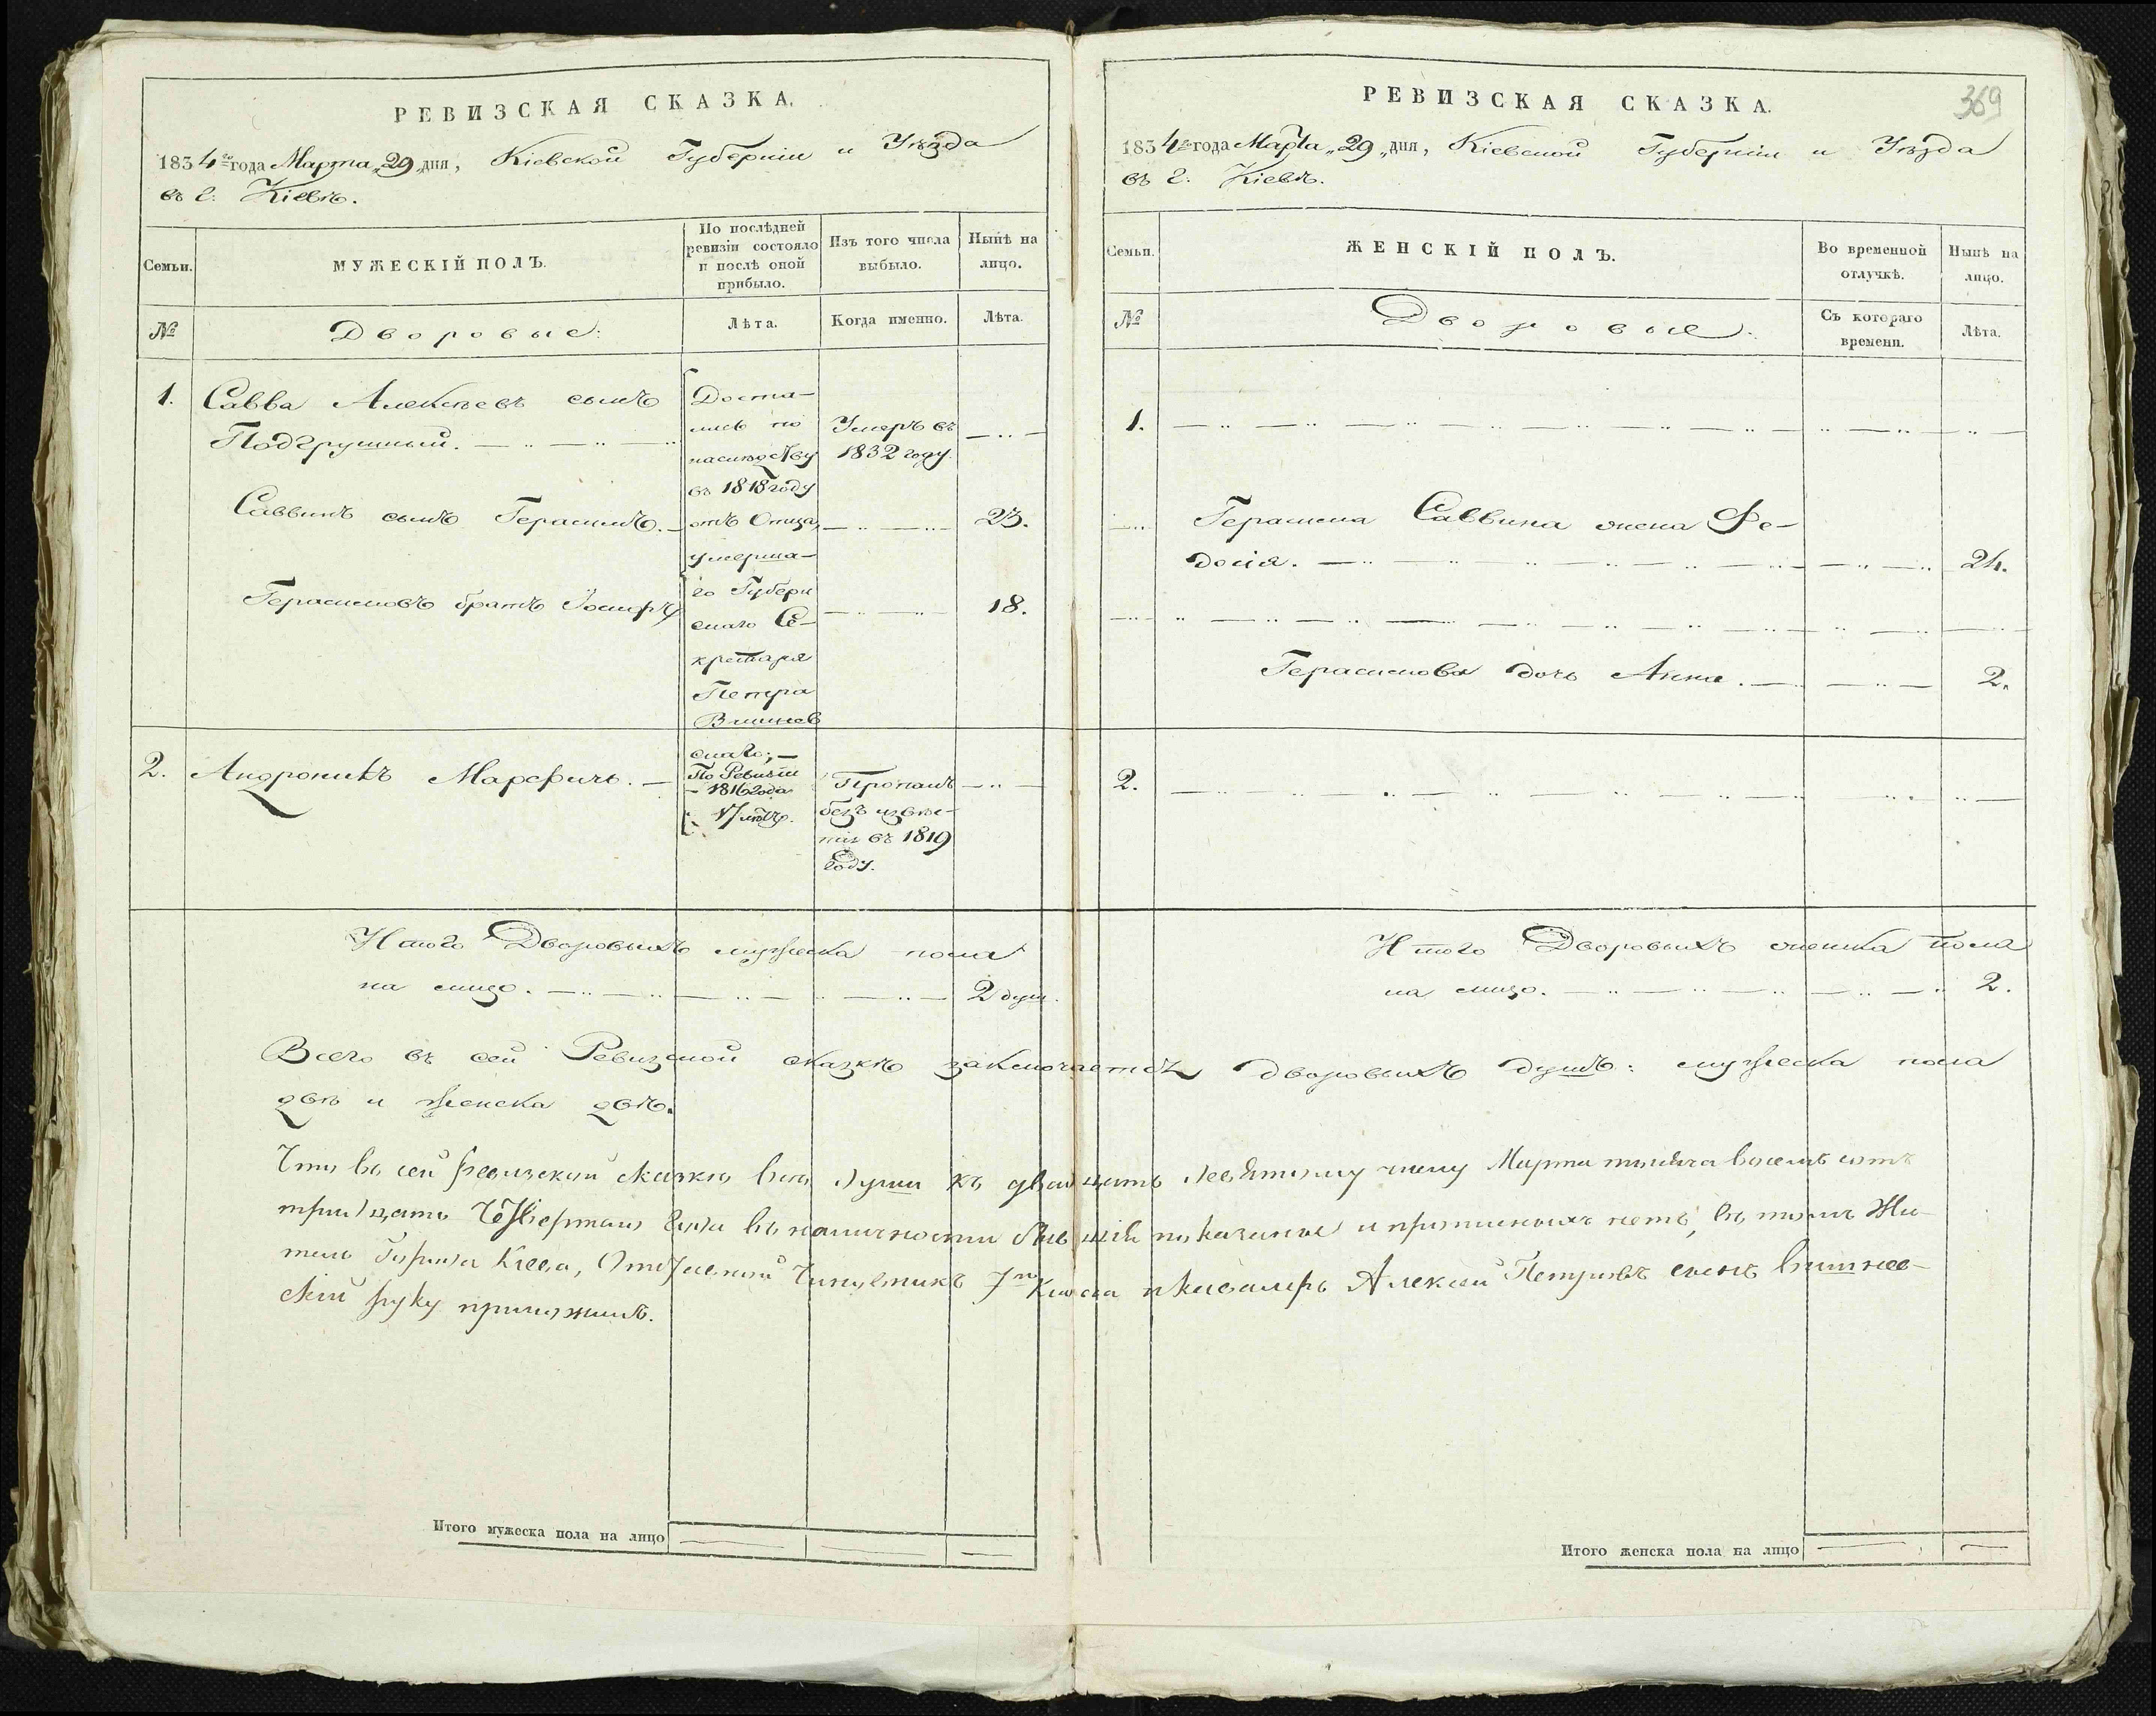 РЕВИЗСКАЯ СКАЗКА.
1834го года Марта „29„ дня, Кіевской Губерніи и Уѣзда
въ г: Кіевѣ.
Семьи.
МУЖЕСКІЙ ПОЛЪ.
По послѣдней
ревизіи состояло
и послѣ оной
прибыло.
Изъ того числа
выбыло.
Нынѣ на
лицо.
№
Дворовые:
Лѣта.
Когда именно.
Лѣта.
1.
Савва Алексѣевъ сынъ
Подгрушный.
Саввинъ сынъ Герасимъ.
Герасимовъ братъ Іосифъ
Доста-
лись по
наслѣдству
въ 1818 году
отъ Отца,
умерша-
го Губерн
скаго Се-
кретаря
Петра
Вишнев
скаго;
Умеръ въ
1832 году.
23.
18.
2.
Андроникъ Марфичъ.
По Ревизіи
1816 года
17 лѣтъ.
Пропалъ
безъ извѣс-
тія въ 1819
году.
Итого Дворовыхъ мужеска пола
на лицо. 2 душ.
РЕВИЗСКАЯ СКАЗКА.
369
1834го года Марта „29„ дня, Кіевской Губерніи и Уѣзда
въ г. Кіевѣ.
Семьи.
ЖЕНСКІЙ ПОЛЪ.
Во временной
отлучкѣ.
Нынѣ на
лицо.
№
Дворовые:
Съ котораго
времени.
Лѣта.
1.
Герасима Саввина жена Ѳе-
досія. 24.
Герасимова дочь Анна. 2.
2.
Итого Дворовыхъ женска пола
на лицо. 2.
Всего въ сей Ревизской сказкѣ заключается дворовыхъ душъ: мужеска пола
двѣ и женска двѣ.
Что въ сей ревизской сказкѣ всѣ души къ двадцать девятому числу Марта тысяча восемь сотъ
тридцать четвертаго года въ наличности бывшія показаны и прописныхъ нетъ, въ томъ Жи-
тель Города Кіева, Отставной Чиновникъ 7го Класса и Кавалеръ Алексей Петровъ сынъ Вишнев-
скій руку приложилъ.
Итого мужеска пола на лицо
Итого женска пола на лицо